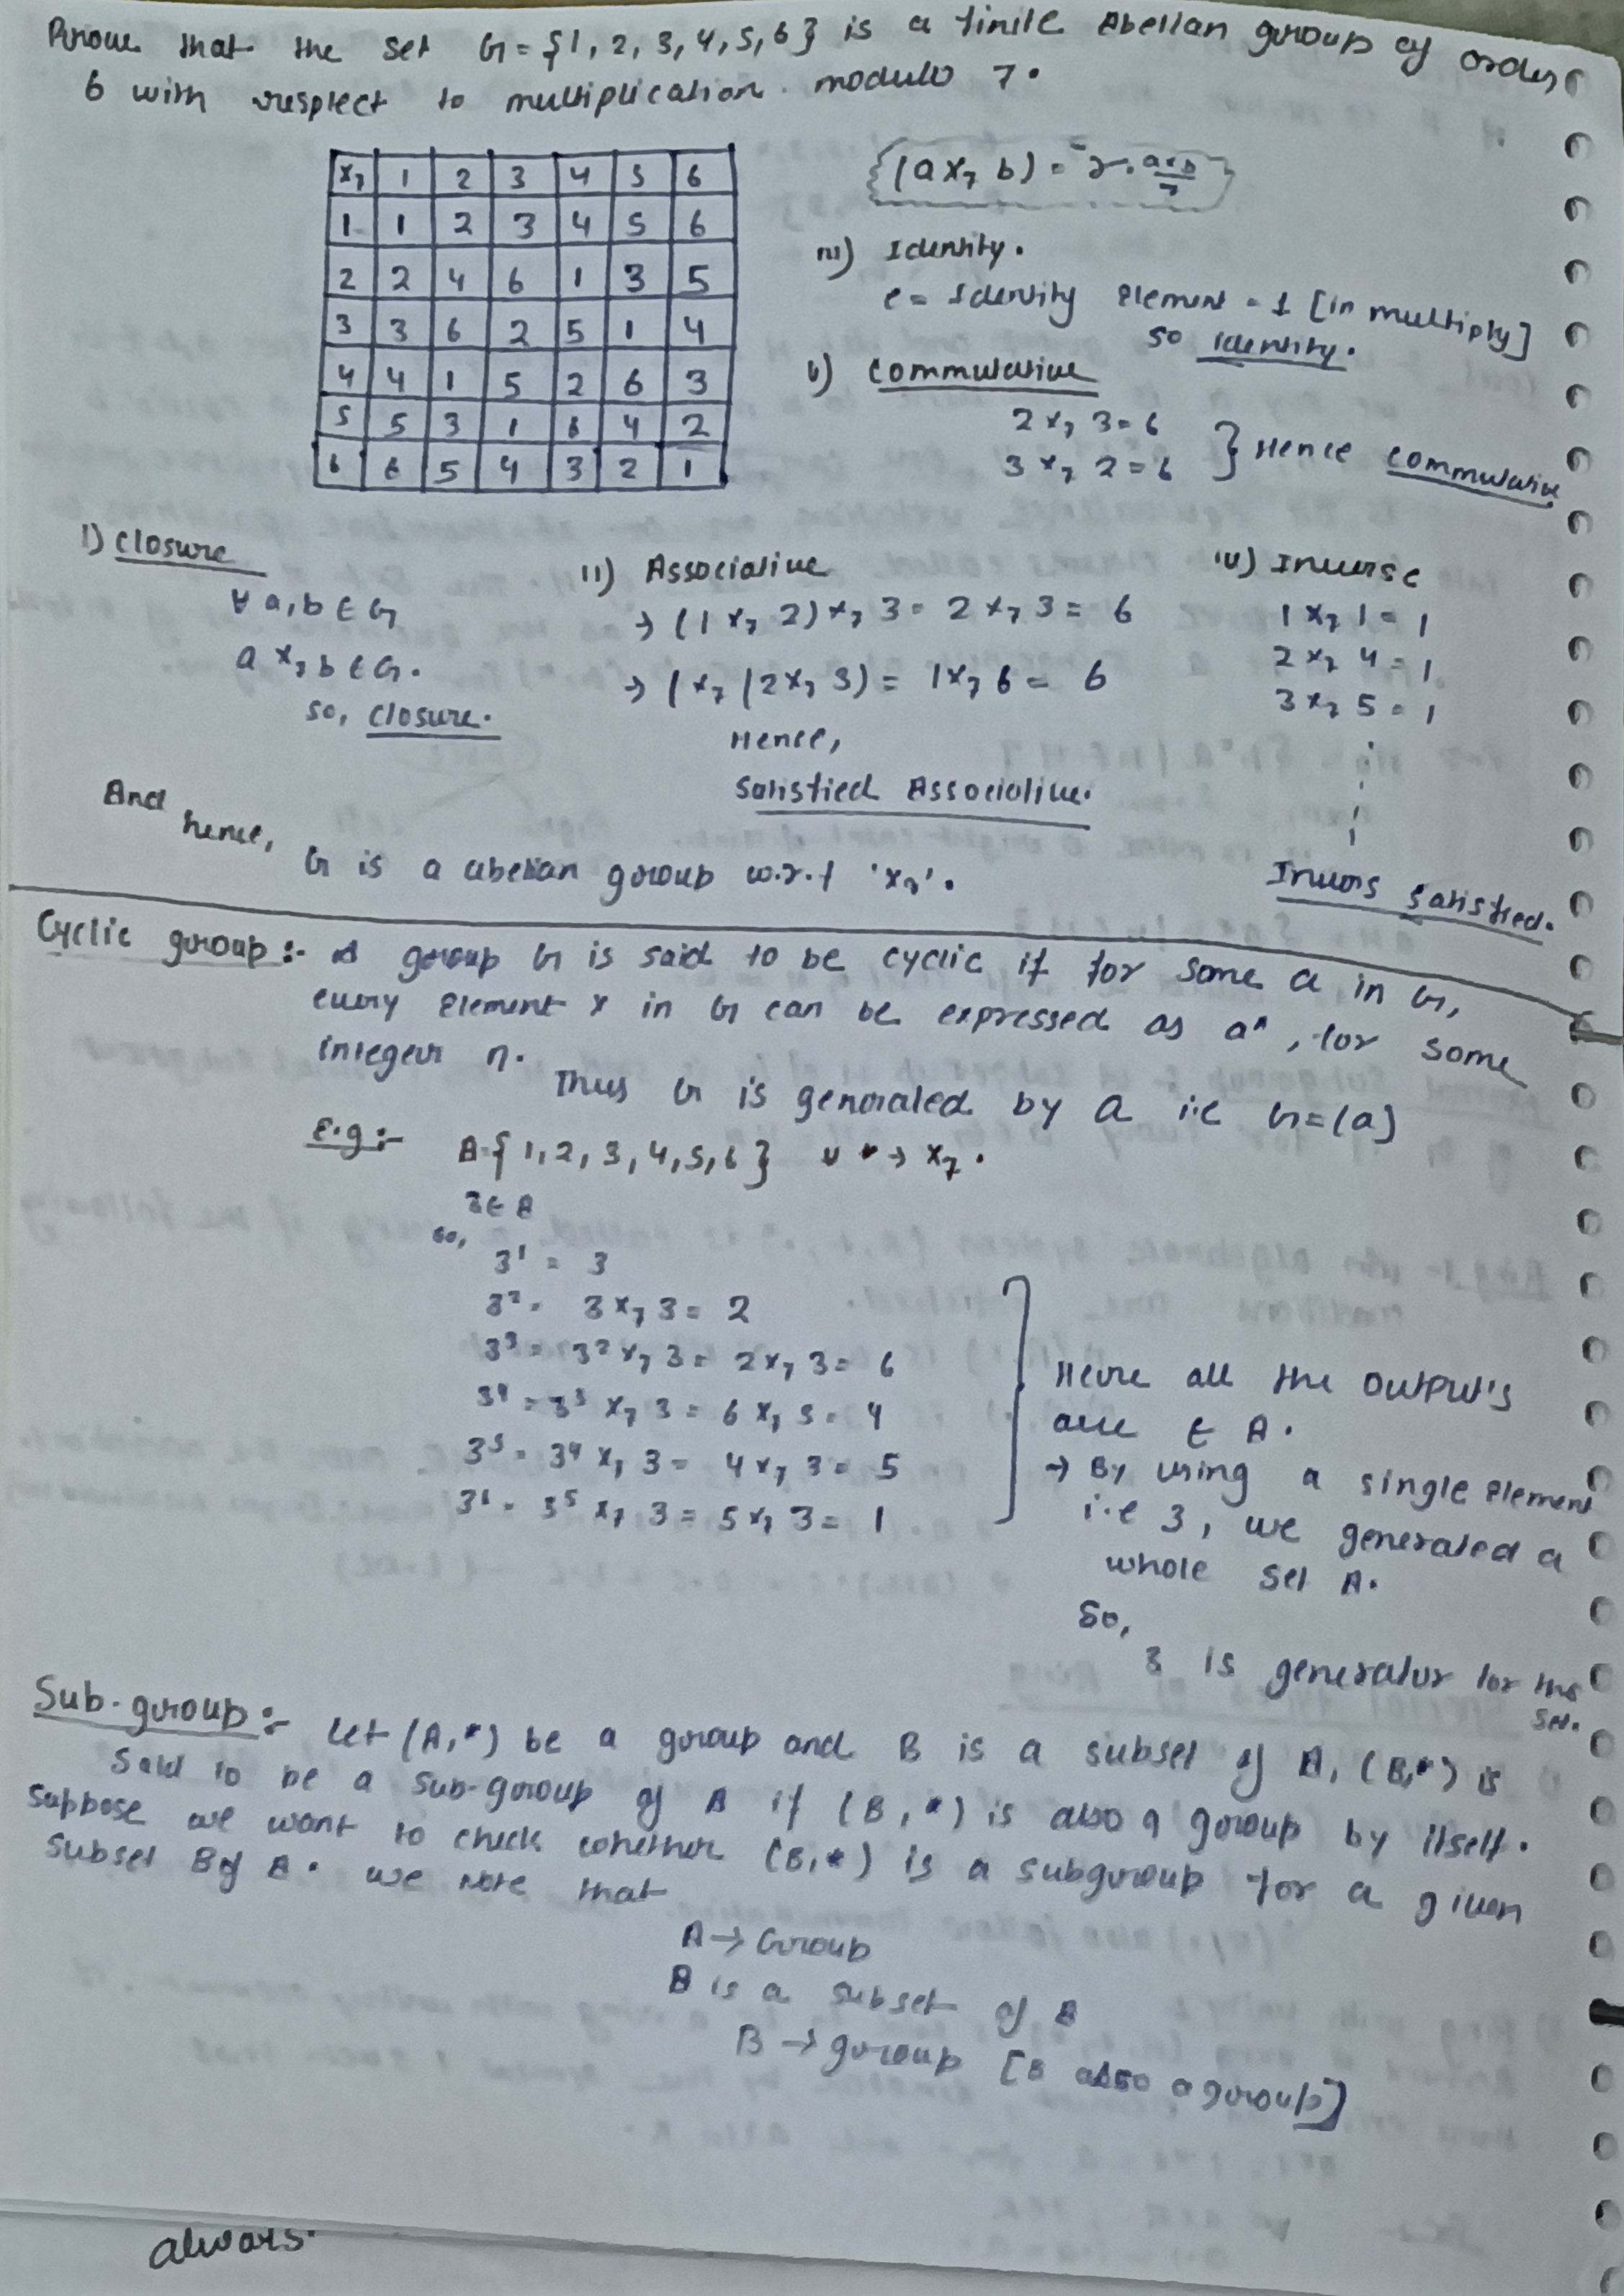 Prove that the set G = {1, 2, 3, 4, 5, 6} is a finite Abelian group of order
6 with resplect to multiplication modulo 7.
x₇ 1 2 3 4 5 6
1 1 2 3 4 5 6
2 2 4 6 1 3 5
3 3 6 2 5 1 4
4 4 1 5 2 6 3
5 5 3 1 6 4 2
6 6 5 4 3 2 1
(a x₇ b) = r. a×b/7
iii) Identity.
e = Identity Element = 1 [in multiply]
so identity.
v) commutative
2 x₇ 3 = 6
3 x₇ 2 = 6 } Hence commutative
i) closure
∀ a, b ∈ G
a x₇ b ∈ G.
so, closure.
ii) Associative
→ (1 x₇ 2) x₇ 3 = 2 x₇ 3 = 6
→ 1 x₇ (2 x₇ 3) = 1 x₇ 6 = 6
Hence,
Satisfied Associative.
iv) Inverse
1 x₇ 1 = 1
2 x₇ 4 = 1
3 x₇ 5 = 1
Invers satisfied.
And hence, G is a abelian group w.r.t 'x₇'.
Cyclic group :- A group G is said to be cyclic if for some a in G,
every Element x in G can be expressed as aⁿ, for some
integer n.
Thus G is generated by a i.e G = (a)
E.g :- A = {1, 2, 3, 4, 5, 6} * → x₇.
3 ∈ A
so,
3¹ = 3
3² = 3 x₇ 3 = 2
3³ = 3² x₇ 3 = 2 x₇ 3 = 6
3⁴ = 3³ x₇ 3 = 6 x₇ 3 = 4
3⁵ = 3⁴ x₇ 3 = 4 x₇ 3 = 5
3⁶ = 3⁵ x₇ 3 = 5 x₇ 3 = 1
Here all the OUTPUT's
are ∈ A.
→ By using a single Element
i.e 3, we generated a
whole set A.
So,
3 is generator for the
set.
Sub-group :- Let (A, *) be a group and B is a subset of A, (B, *) is
said to be a sub-group of A if (B, *) is also a group by itself.
Suppose we want to check whether (B, *) is a subgroup for a given
subset B of A. we note that
A → Group
B is a subset of A
B → group [B also a group]